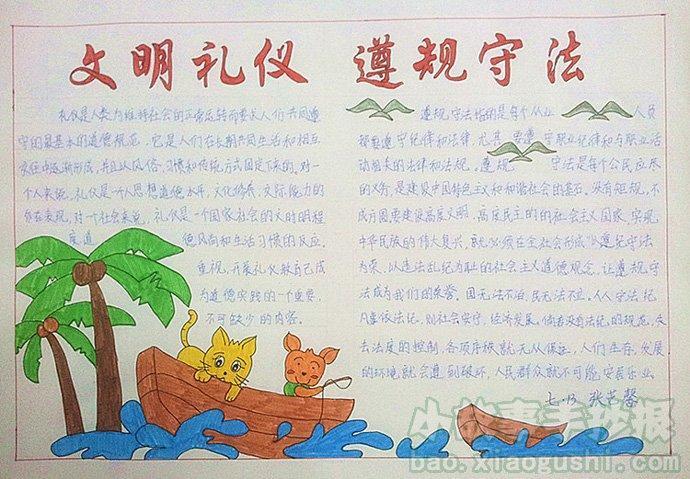 文明礼仪 遵规守法
礼仪是人类为维持社会的正常运转而要求人们共同遵
守的最基本的道德规范,它是人们在长期共同生活和相互
交往中逐渐形成,并且以风俗、习惯和传统方式固定下来的。对一
个人来说,礼仪是一个人思想道德水平,文化修养,交际能力的
外在表现,对一个社会来说,礼仪是一个国家社会的文明程
度,道德风尚和生活习惯的反应。
重视,开展礼仪教育已成
为道德实践的一个重要,
不可缺少的内容。
遵规守法指的是每个从业人员
都要遵守纪律和法律,尤其要遵守职业纪律和与职业活
动相关的法律和法规。遵规守法是每个公民应尽
的义务,是建设中国特色主义和和谐社会的基石。没有矩规,不
成方圆要建设高度文明,高度民主的的社会主义国家,实现
中华民族的伟大复兴,就必须在全社会形成"以遵纪守法
为荣、以违法乱纪为耻的社会主义道德观念,让遵规守
法成为我们的荣誉。国无法不治,民无法不立,人人守法纪,
凡事依法纪,则社会安宁,经济发展。倘若没有法纪的规范,失
去法度的控制,各项序秩就无从保证,人们生存、发展
的环境就会遭到破坏,人民群众就不可能安居乐业
七·13
故事手抄报
bao.xiaogushi.com